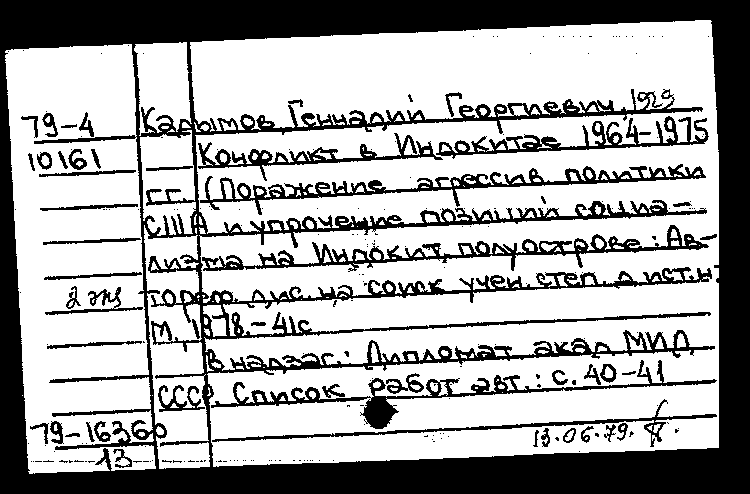 79-4 Кадымов, Геннадий Георгиевич, 1929
10161 Конфликт в Индокитае 1964-1975
гг. (Поражение агрессив. политики
США и упрочение позиций социа-
лизма на Индокит. полуострове: Ав-
2 экз тореф. дис. на соиск учен. степ. д. ист. н.
М., 1978. - 41с
В надзаг.: Дипломат. акад МИД
СССР. Список работ авт.: с. 40-41
79-16360
13
13.06.79.